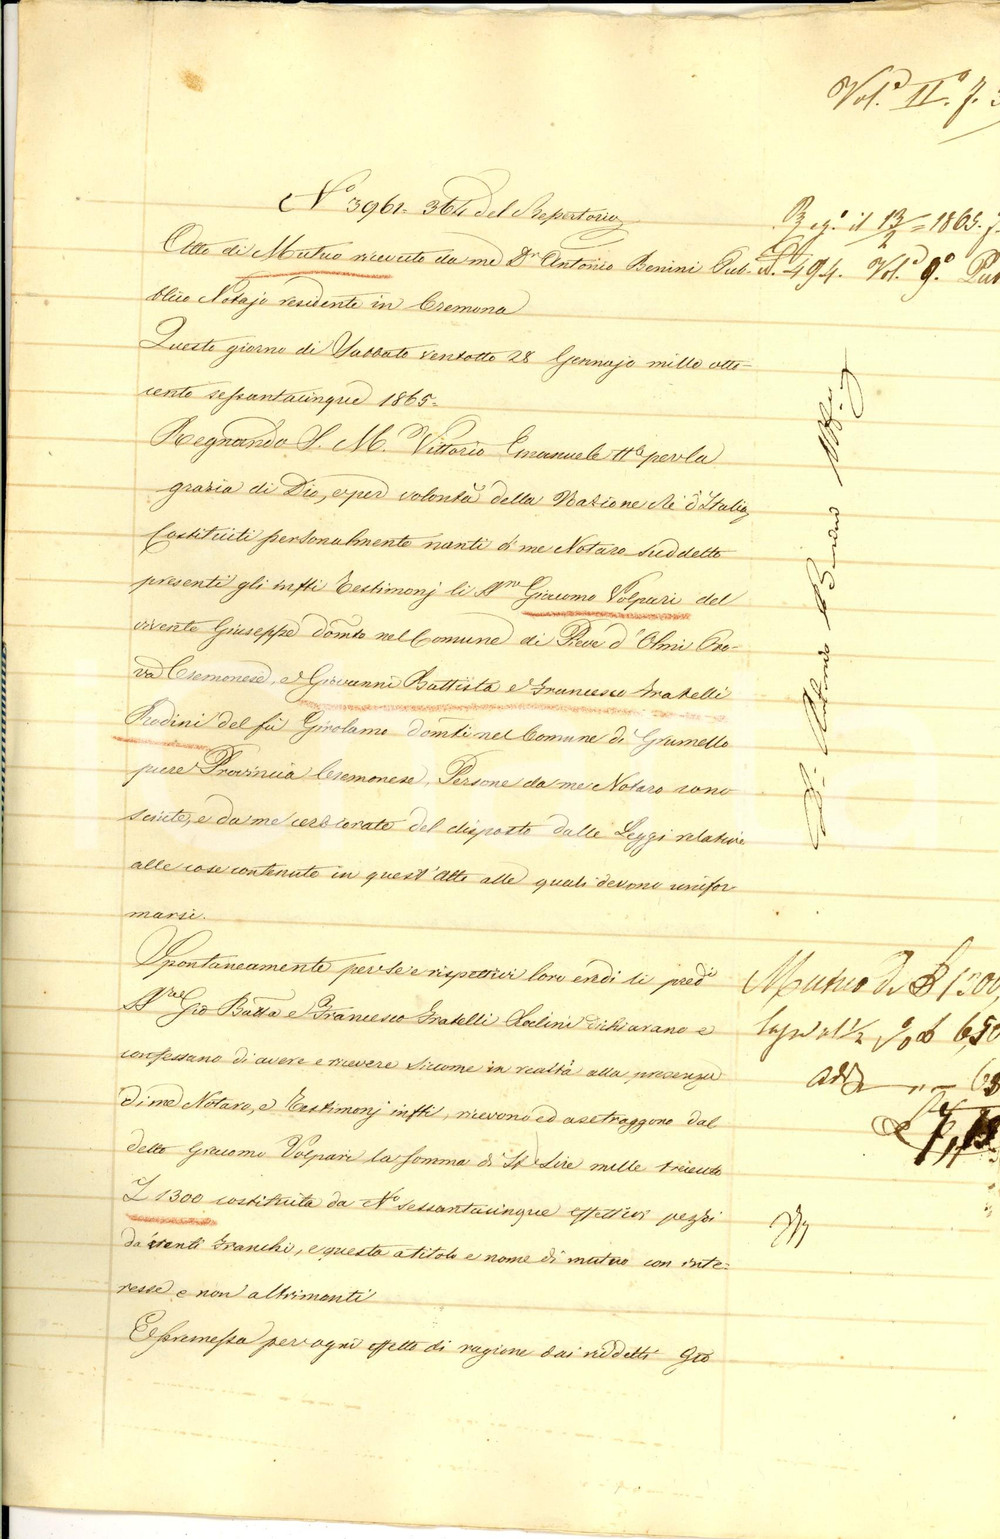 Vol.e II.o f. 3
No 3961= 364 del Repertorio
Reg.o il 13/2 = 1865. f.
Atto di Mutuo ricevuto da me Dr Antonio Benini Pub-
N. 494. Vol.e 9.o Pub
blico Notajo residente in Cremona
Questo giorno di Sabbato ventotto 28 Gennajo mille otto-
cento sessantacinque 1865=
Regnando S. M. Vittorio Emanuele IIo per la
grazia di Dio, e per volontà della Nazione Rè d'Italia
Costituiti personalmente nanti di me Notaro suddetto
presenti gli infti Testimonj li Srri Giacomo Volpari del
vivente Giuseppe domto nel Comune di Pieve d'Olmi Pro-
va Cremonese, e Giovanni Battista e Francesco Fratelli
Rodini del fù Girolamo domti nel Comune di Grumello
pure Provincia Cremonese, Persone da me Notaro cono
sciute, e da me cerziorate del disposto dalle Leggi relative
alle cose contenute in quest'Atto alle quali devono unifor
marsi.
Dr Antonio Benini
Spontaneamente per se e rispettivi loro eredi li predi
Gio Batta e Francesco Fratelli Rodini dichiarano e
confessano di avere e ricevere siccome in realtà alla presenza
di me Notaro, e Testimonj infti, ricevono ed asstraggono dal
detto Giacomo Volpari la somma di It Lire mille trecento
L 1300 costituita da No sessantacinque effettivi pezzi
da venti franchi, e questa a titolo e nome di mutuo con inte=
resse e non altrimenti
E promessa per ogni effetto di ragione dai suddetti Gio
Mutuo di L 1300
1/2 % L 6,50
65